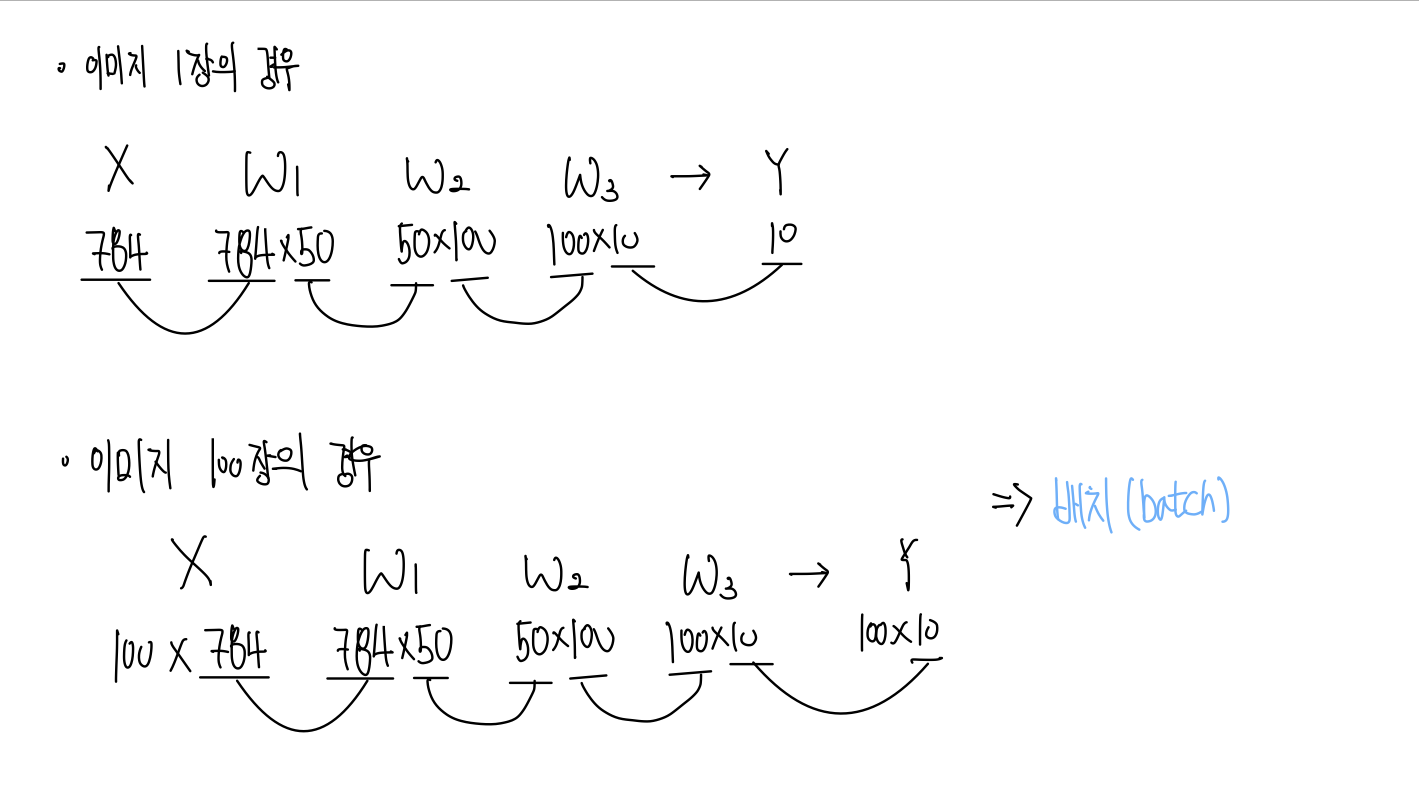 • 이미지 1장의 경우
X W1 W2 W3 → Y
784 784×50 50×100 100×10 10
• 이미지 100장의 경우
⇒ 배치 (batch)
X W1 W2 W3 → Y
100 × 784 784×50 50×100 100×10 100×10